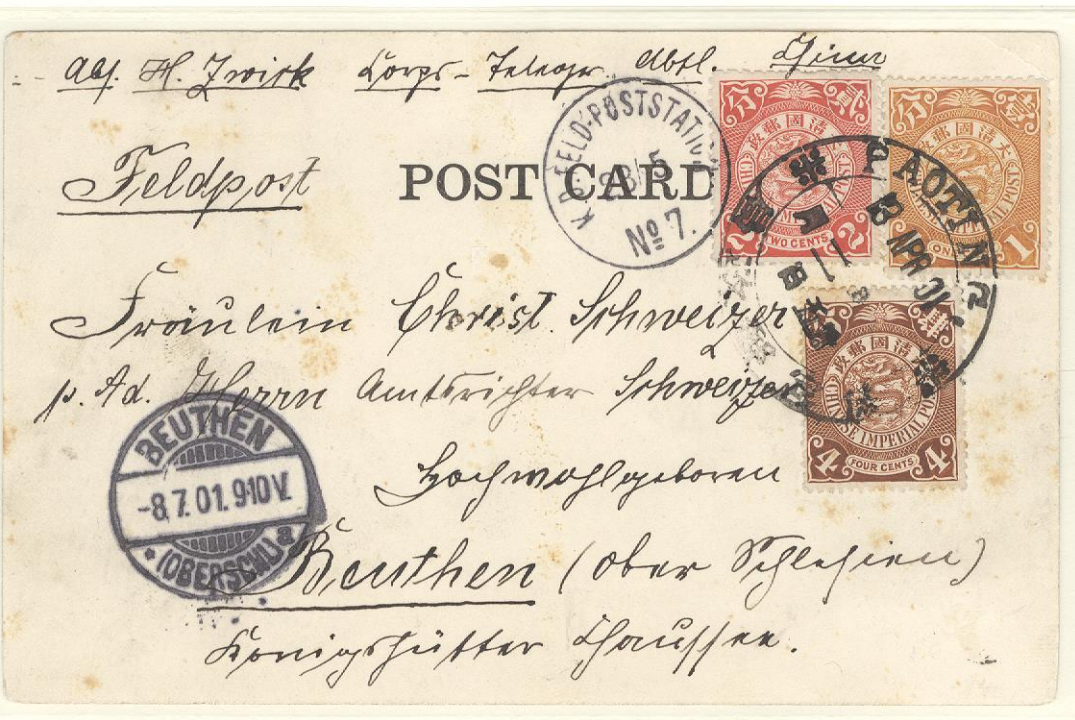 Abs. H. Zwirk Corps-Telegr. Abtl. China
Feldpost
POST CARD
K.D. FELD-POSTSTATION
No 7.
分 貳
大清國郵政
CHINESE IMPERIAL POST
2 TWO CENTS 2
分 壹
大清國郵政
CHINESE IMPERIAL POST
1 ONE CENT 1
PAOTING
APR 01
大清國郵政
CHINESE IMPERIAL POST
4 FOUR CENTS 4
Fräulein Christ. Schweizer
p. Ad. Herrn Amtsrichter Schweizer
Hochwohlgeboren
BEUTHEN
-8.7.01.9-10V.
(OBERSCHL.) a
Beuthen (Ober Schlesien)
Königshütter Chaussee.